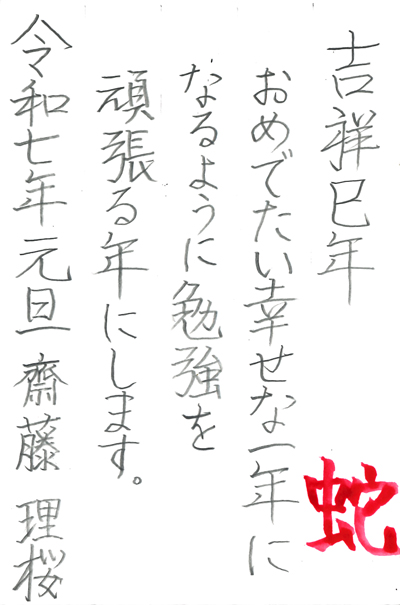 吉祥巳年
おめでたい幸せな一年に
なるように勉強を
頑張る年にします。
令和七年元旦 齋藤 理桜
蛇